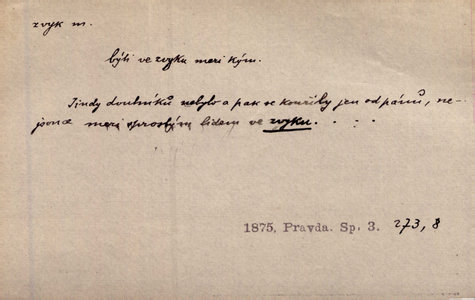 zvyk m.
býti ve zvyku mezi kým.
Jindy doutníků nebylo a pak se kouřily jen od pánů, ne-
jsouce mezi sprostým lidem ve zvyku. . . .
1875, Pravda. Sp. 3. 273, 8